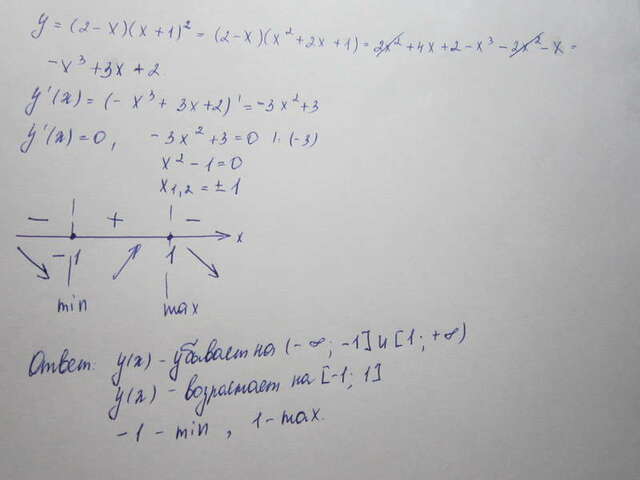 y = (2 - x)(x + 1)² = (2 - x)(x² + 2x + 1) = 2x² + 4x + 2 - x³ - 2x² - x =
- x³ + 3x + 2.
y'(x) = (- x³ + 3x + 2)' = -3x² + 3
y'(x) = 0, -3x² + 3 = 0 |: (-3)
x² - 1 = 0
x₁,₂ = ± 1
- + -
-1 1 x
min max
Ответ: y(x) - убывает на (-∞; -1] и [1; +∞)
y(x) - возрастает на [-1; 1]
-1 - min, 1 - max.